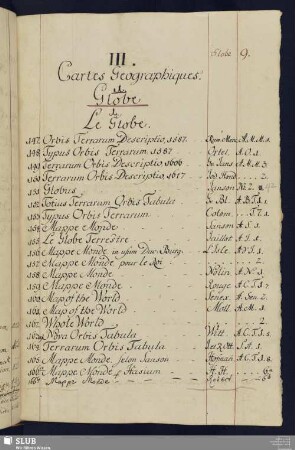 Globe 9.
III.
Cartes Geographiques.
Globe.
Le Globe.
147. Orbis Terrarum Descriptio, 1587. Rom. Merc. A. M. M. 1.
148. Typus Orbis Terrarum 1587. Ortel. A. O. 1.
149. Terrarum Orbis Descriptio 1606 A. M. 3
150. Terrarum Orbis Descriptio 1617 Jod Hond 2.
151. Globus Janson N. 2.
152. Totius Terrarum Orbis Tabula Bl. A. B. T. 1. 1.
153. Typus Orbis Terrarum Colom. 1.
158. Mappe Monde Janson A. S. 1.
155. Le Globe Terrestre Jaillot A. J. 1.
156. Mappe Monde in usum Duc. Burg. L'Isle A. J. 1.
157. Mappe Monde pour le Roi 2.
158. Mappe Monde Nolin A. N. 1.
159. Mappe Monde Rouge A. C. T. 1. 2
160. Map of the World Senex A. Sen. 2.
161. Map of the World Moll A. M. 1.
162. Whole World 2.
163. Nova Orbis Tabula Witt A. C. T. 1. 1.
164. Terrarum Orbis Tabula
165. Mappe Monde selon Sanson Homan A. C. T. 1. 8
166. Mappe Monde Hasium H. H.
Mappe Monde
SLUB
Wir führen Wissen.